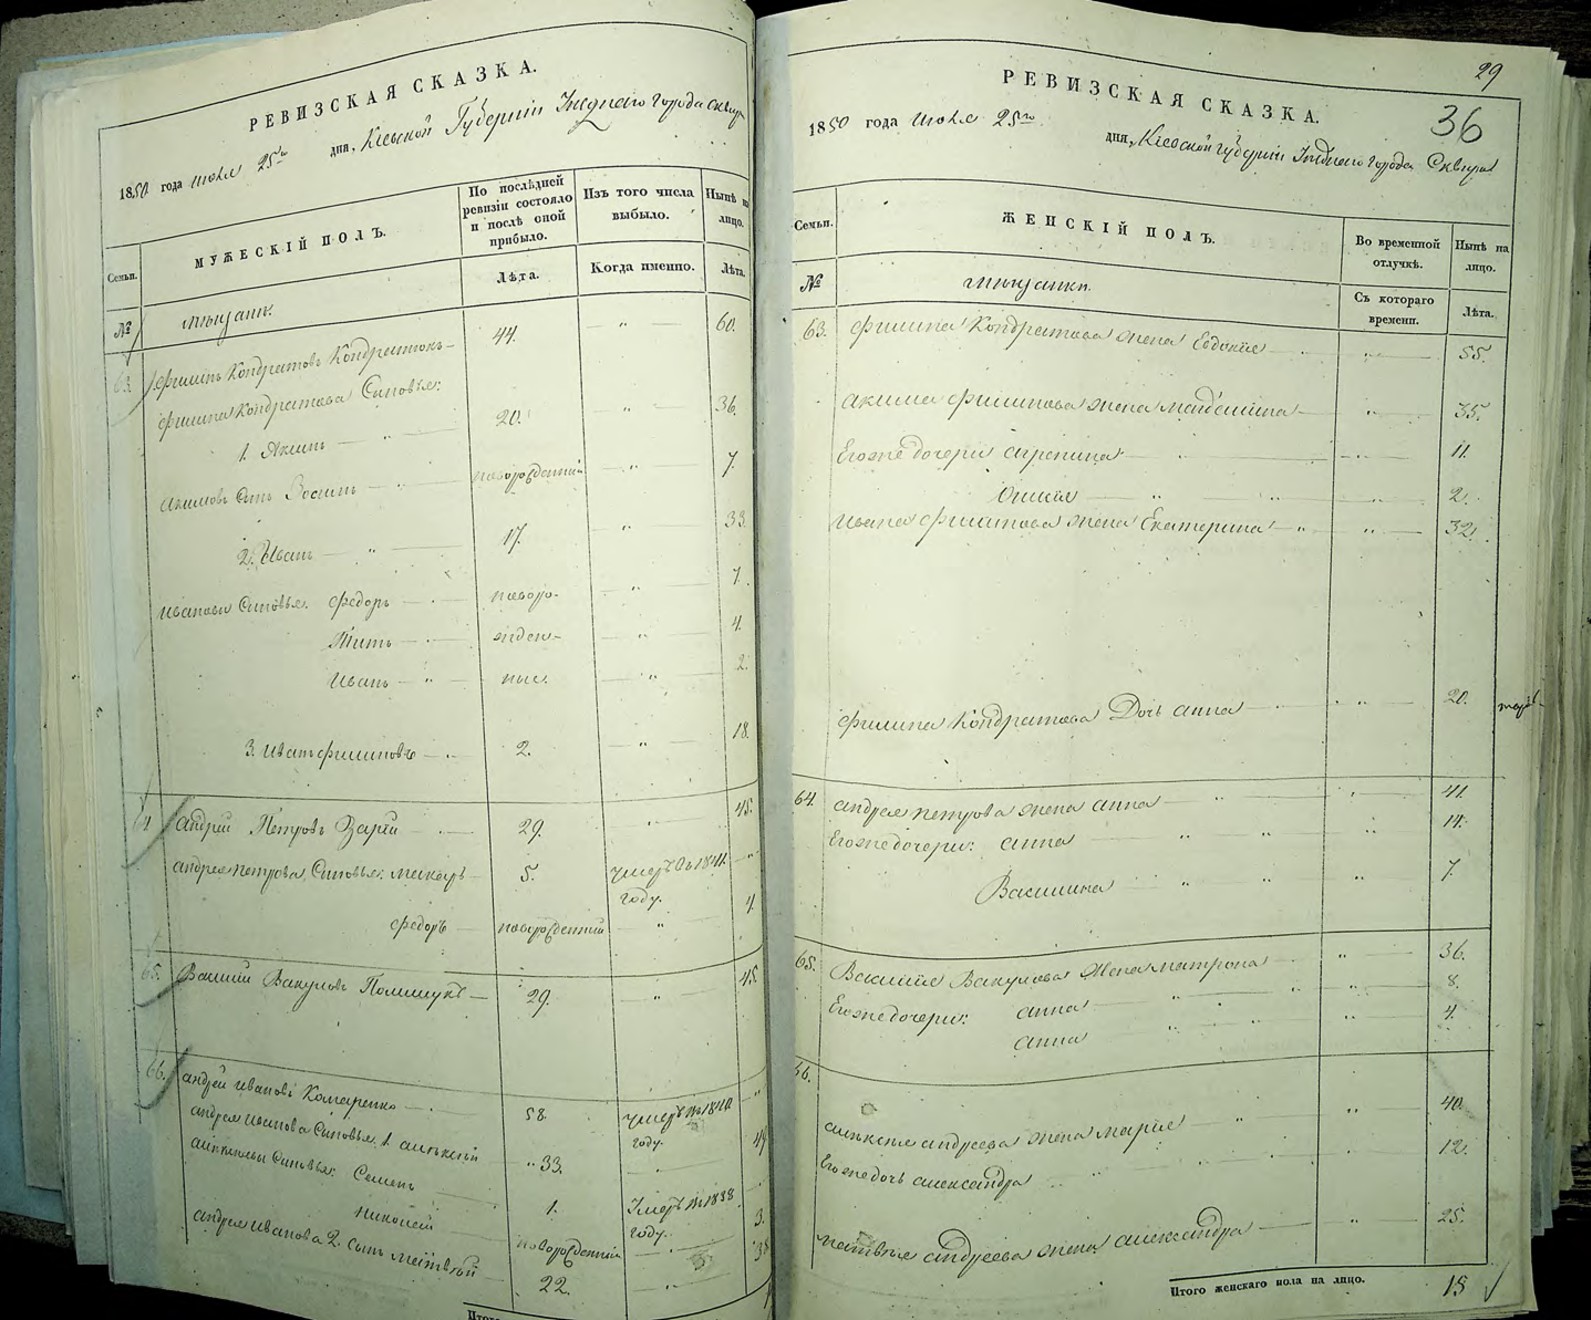 РЕВИЗСКАЯ СКАЗКА.
1850 года июля 25го дня, Кіевской Губерніи Уезднаго города Сквиры
Семьи.
МУЖЕСКІЙ ПОЛЪ.
По послѣдней ревизіи состояло и послѣ оной прибыло.
Изъ того числа выбыло.
Нынѣ на лицо.
№
мѣщане.
Лѣта.
Когда именно.
Лѣта.
63. Филипъ Кондратовъ Кондратюкъ — 44. — " — 60.
Филипа Кондратова Сыновья:
1. Акимъ — " — 20. — " — 36.
Акимовъ Сынъ — новорожденный — " — 7.
2. Иванъ — " — 17. — " — 33.
Ивановы Сыновья. Федоръ — новоро- — " — 7.
Титъ — жден- — " — 4.
Иванъ — " — ные. — " — 2.
3. Иванъ Филиповъ — 2. — " — 18.
64 Андрей Петровъ — 29. — " — 45.
Андрея Петрова Сыновья: Макаръ — 5. умеръ въ 1841. — "
году.
Федоръ — новорожденный — " — 4.
65. Василій Вакуловъ Полищукъ — 29. — " — 45.
66. Андрей Ивановъ Комаренко — 58. умеръ въ 1840 — "
году.
Андрея Иванова Сыновья. 1. Алексѣй — 33. — " — 49
Алексѣевы Сыновья: Семенъ — 1. Умеръ въ 1838
году.
Николай — новорожденный — " — 3.
Андрея Иванова 2. сынъ Матвѣй — 22. — " — 38
Итого
29
36
РЕВИЗСКАЯ СКАЗКА.
1850 года июля 25го дня, Кіевской губерніи Уезднаго города Сквиры
Семьи.
ЖЕНСКІЙ ПОЛЪ.
Во временной отлучкѣ.
Нынѣ на лицо.
№
мѣщанки.
Съ котораго времени.
Лѣта.
63. Филипа Кондратова жена Евдокія — " — 55.
Акима Филипова жена Магдалина — " — 35.
Его же дочери Агрепина — " — 11.
— " — " — 2.
Ивана Филипова жена Екатерина — " — 32.
Филипа Кондратова Дочь Анна — " — 20.
64. Андрея Петрова жена Анна — " — 41.
Его же дочери: Анна — " — 14.
Василина — " — 7.
65. Василія Вакулова жена Матрона — " — 36.
Его же дочери: Анна — " — 8.
Анна — " — 4.
66.
Алексѣя Андреева жена Марія — " — 40.
Его же дочь Александра — " — 12.
Матвѣя Андреева жена Александра — " — 25.
Итого женскаго пола на лицо. 15